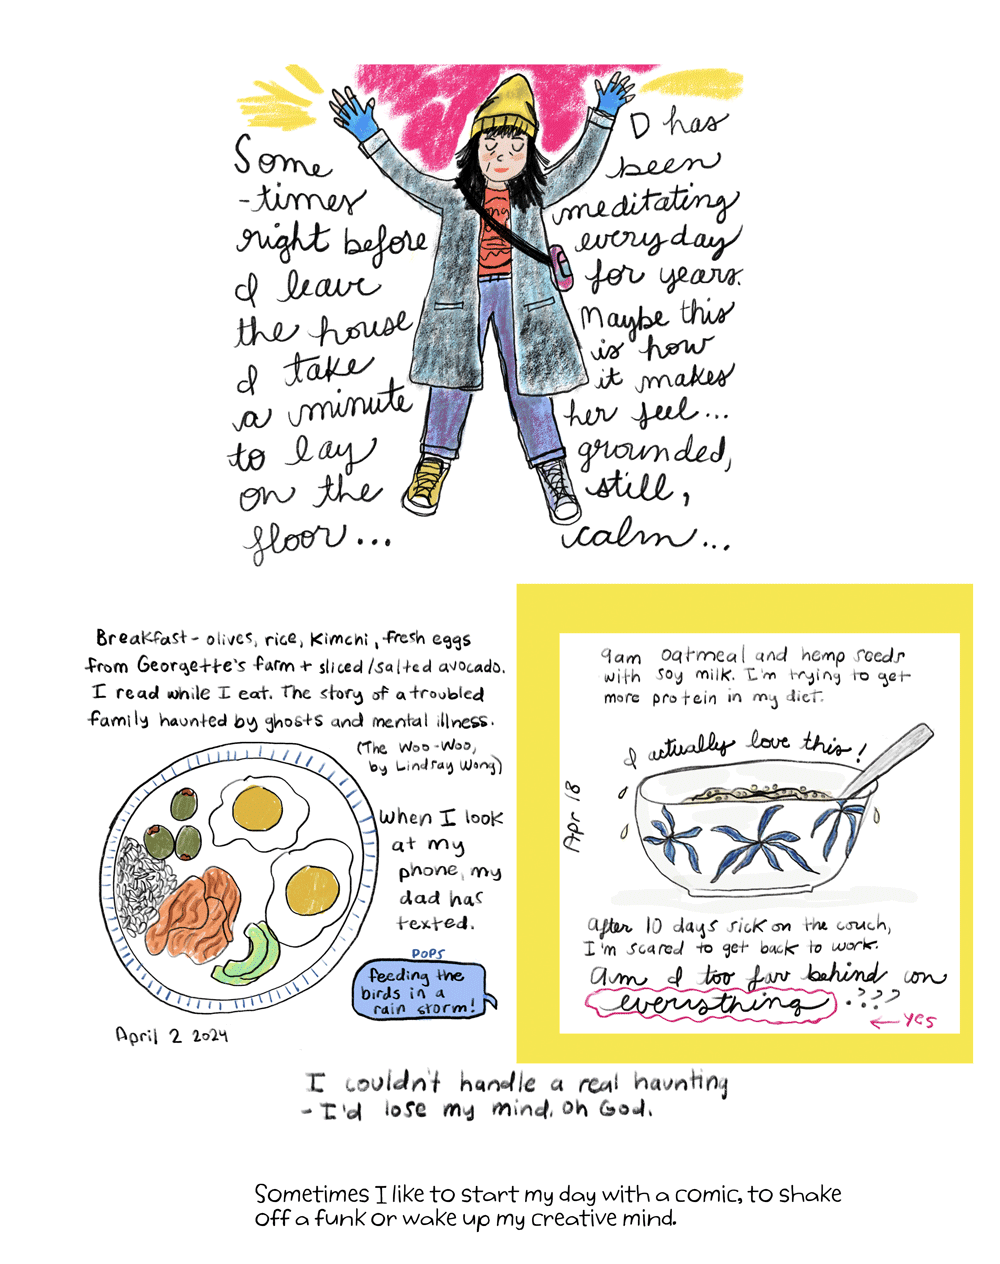 Some
-times
right before
I leave
the house
I take
a minute
to lay
on the
floor...
D has
been
meditating
everyday
for years.
Maybe this
is how
it makes
her feel...
grounded,
still,
calm...
Breakfast- olives, rice, kimchi, fresh eggs
from Georgette's farm + sliced/salted avocado.
I read while I eat. The story of a troubled
family haunted by ghosts and mental illness.
(The Woo-Woo,
by Lindsay Wong)
When I look
at my
phone, my
dad has
texted.
POPS
feeding the
birds in a
rain storm!
April 2 2024
9am oatmeal and hemp seeds
with soy milk. I'm trying to get
more protein in my diet.
I actually love this!
Apr 18
After 10 days sick on the couch,
I'm scared to get back to work.
Am I too far behind on
everything ???
← yes
I couldn't handle a real haunting
- I'd lose my mind. Oh God.
Sometimes I like to start my day with a comic, to shake
off a funk or wake up my creative mind.